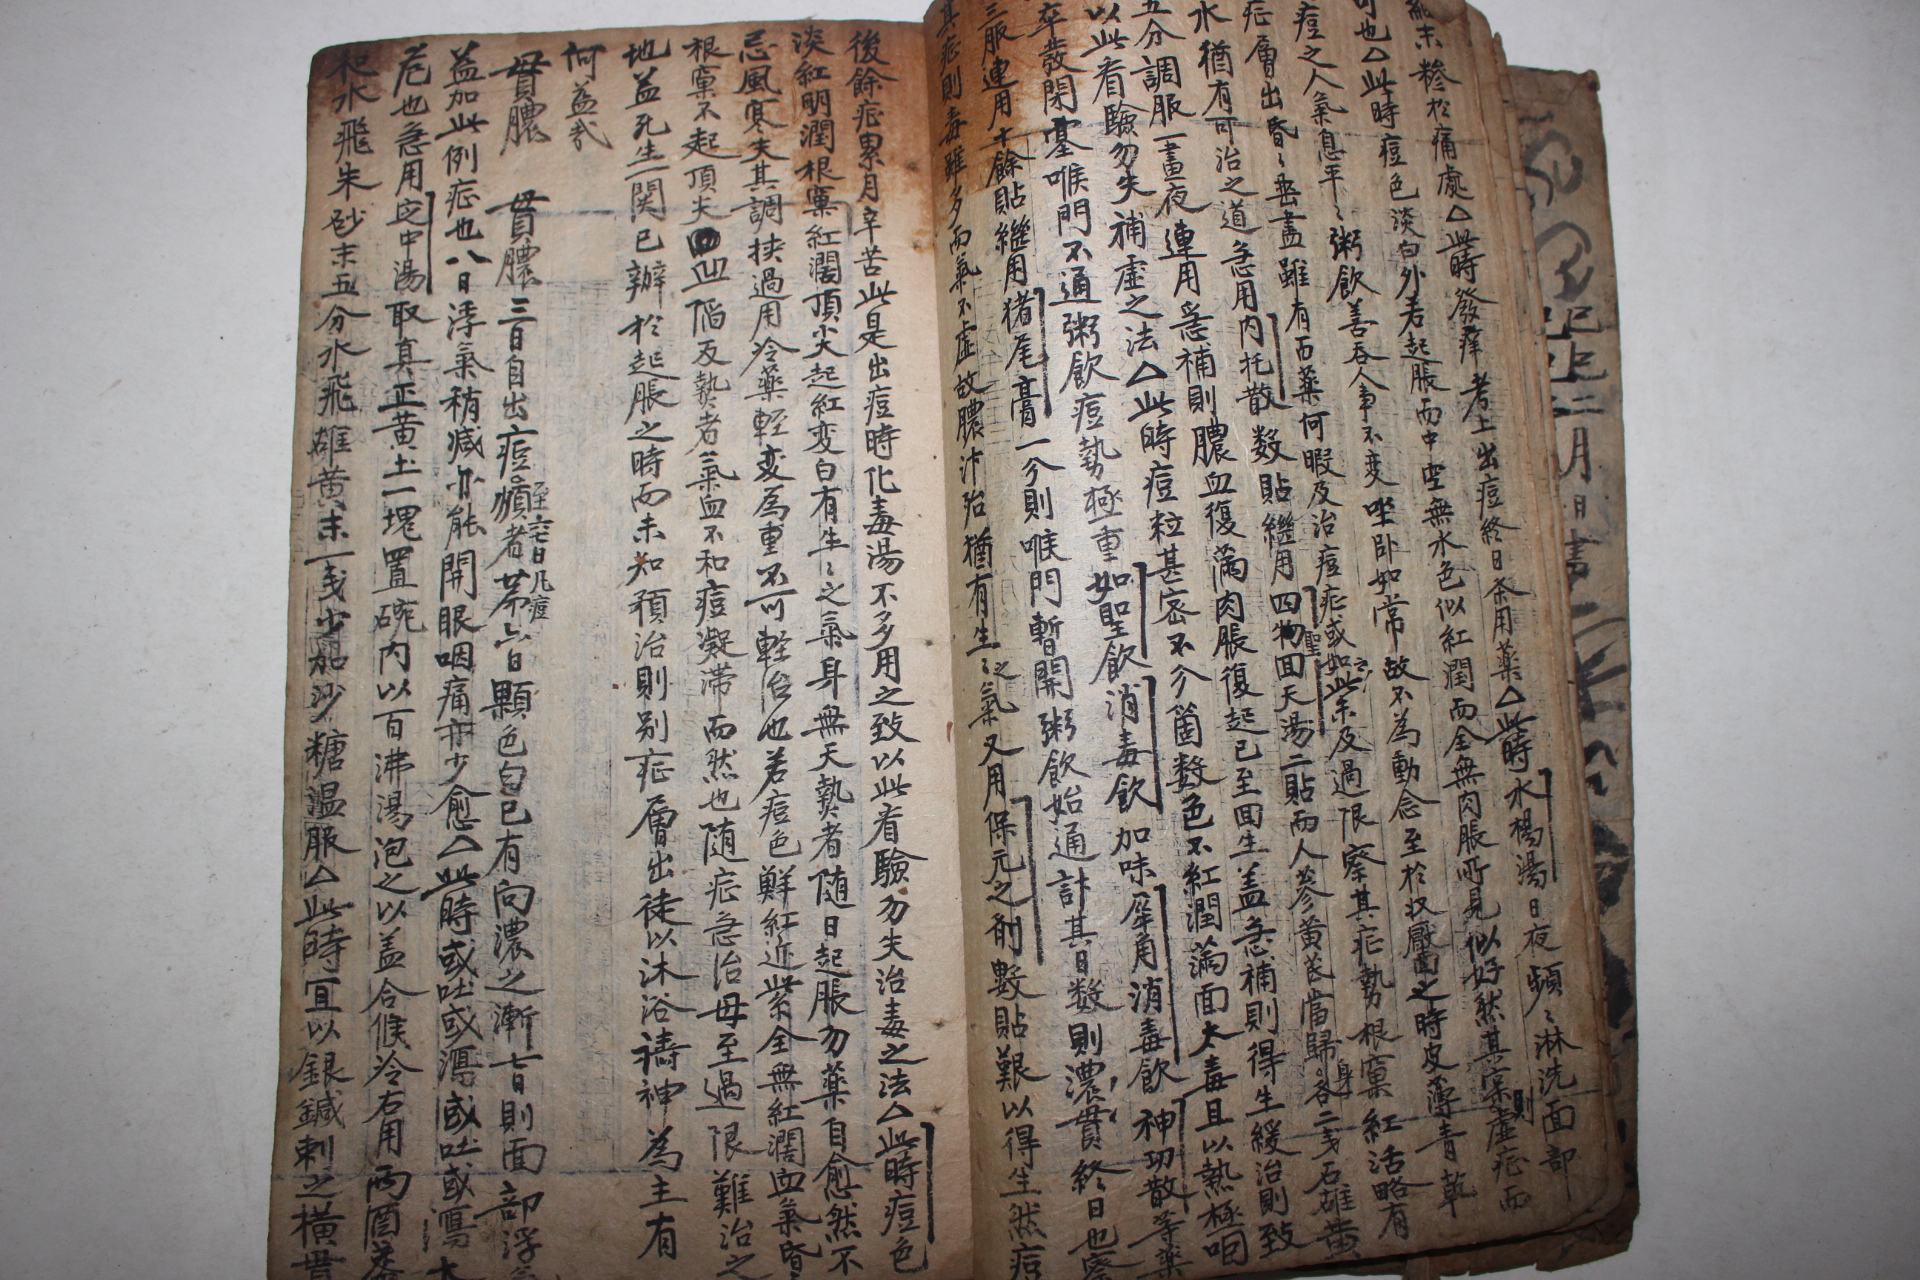 紅末糝於痛處△此時發癢考上出痘終日条用藥△此時水楊湯日夜頻〻淋洗面部
可也△此時痘色淡白外若起脹而中空無水色似紅潤而全無肉脹所見似好然其深則虛症而
痘之人氣息平〻粥飮善吞人事不变坐卧如常故不為動念至於收靨之時皮薄青乾
症層出昏〻垂盡雖有而藥何暇及治痘症或如此〻及過限察其症勢根窠紅活略有
水猶有可治之道急用內托散数貼繼用四物回天湯二貼而人參黃芪當歸身各二戔石雄黄
五分調服一晝夜連用急補則膿血復滿肉脹復起已至回生盖急補則得生緩治則致
以此看驗勿失補虛之法△此時痘粒甚密不分箇数色不紅潤滿面太毒且以熱極咽
卒發閉塞喉門不通粥飮痘勢極重如聖飮消毒飮加味犀角消毒飮神功散等藥
三服連用十餘貼繼用猪尾膏一分則喉門暫開粥飮始通計其日数則濃貫終日也察
其症則毒雖多而氣不虛故膿汁殆猶有生〻之氣又用保元之剤數貼艱以得生然痘
後餘症累月辛苦此是出痘時化毒湯不多用之致以此看驗勿失治毒之法△此時痘色
淡紅明潤根窠紅濶頂尖起紅変白有生〻之氣身無大熱者随日起脹勿藥自愈然不
忌風寒失其調挟過用冷藥輕変為重不可軽治也若痘色鮮紅近紫全無紅濶血氣昏
根窠不起頂尖凹陷及熱者氣血不和痘凝滞而然也随症急治毋至過限難治之
地益死生一関已辦於起脹之時而未知預治則别症層出徒以沐浴禱神為主有
何益㢤
貫膿 貫膿三日自出痘至六七日凡痘頻者苐六日顆色匀已有向濃之漸七日則面部浮氣
益加此例症也八日浮氣稍减亦能開眼咽痛亦少愈△此時或吐或瀉或吐或瀉
危也急用㝎中湯取真正黄土一塊置碗內以百沸湯泡之以盖合候冷右用兩酉
和水飛朱砂末五分水飛雄黄末一戔少加沙糖温服△此時冝以銀鍼刺之橫貫